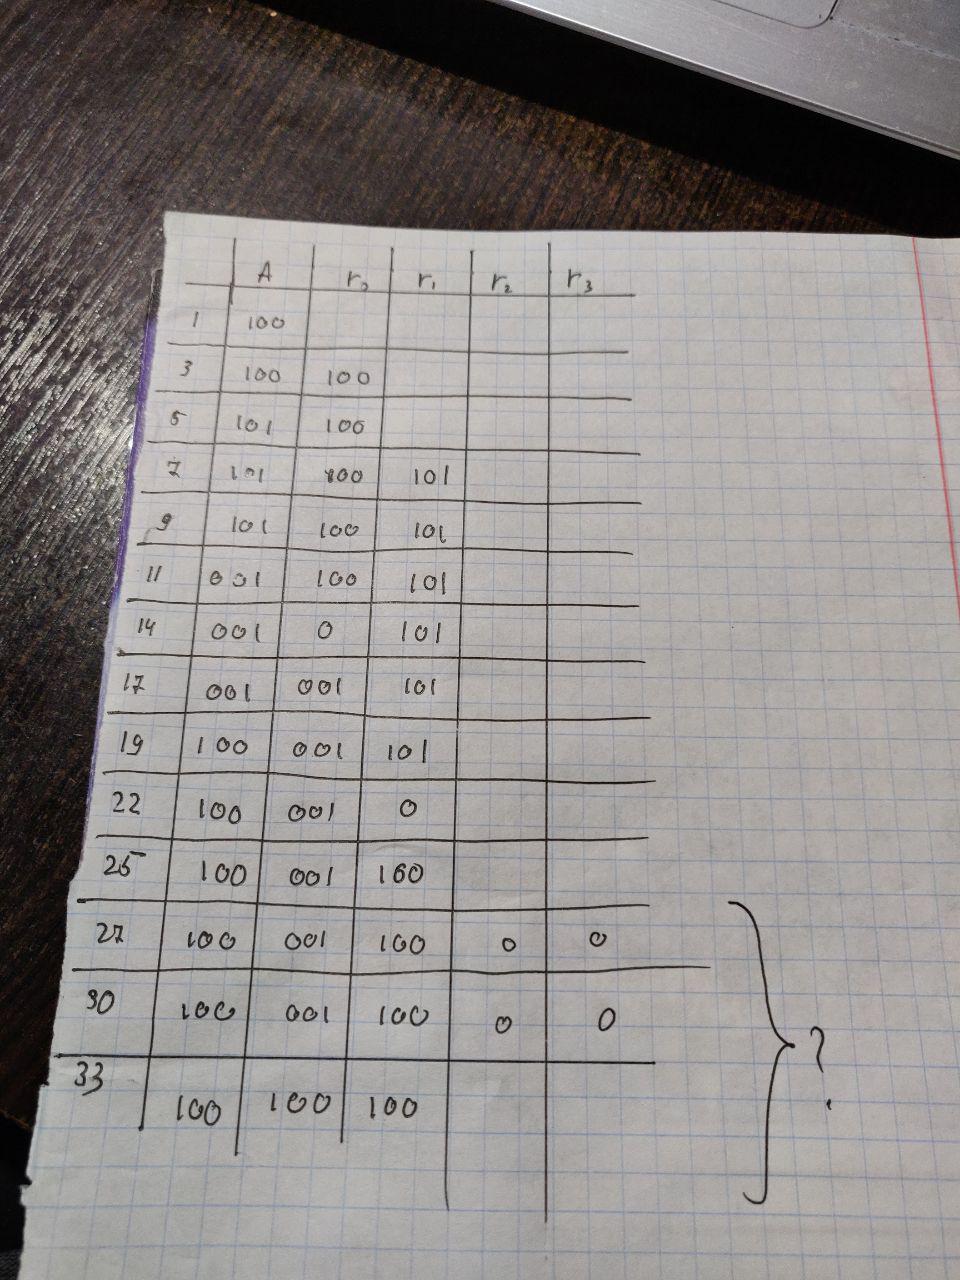 A r₀ r₁ r₂ r₃
1 100
3 100 100
5 101 100
7 101 100 101
9 101 100 101
11 001 100 101
14 001 0 101
17 001 001 101
19 100 001 101
22 100 001 0
25 100 001 100
27 100 001 100 0 0
30 100 001 100 0 0
33 100 100 100
?